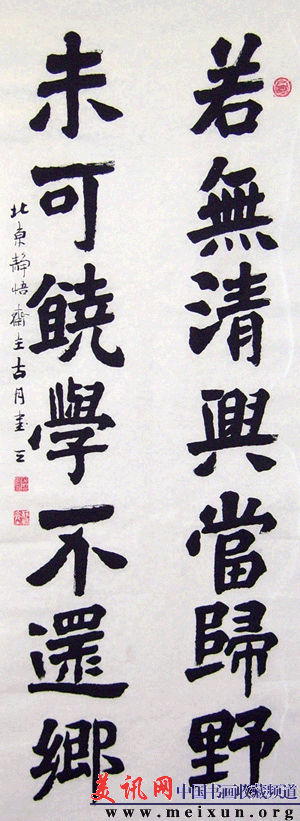 若無清興當歸野
未可饒學不還鄉
北京靜悟齋主古月書
美讯网 中国书画收藏频道
www.meixun.org